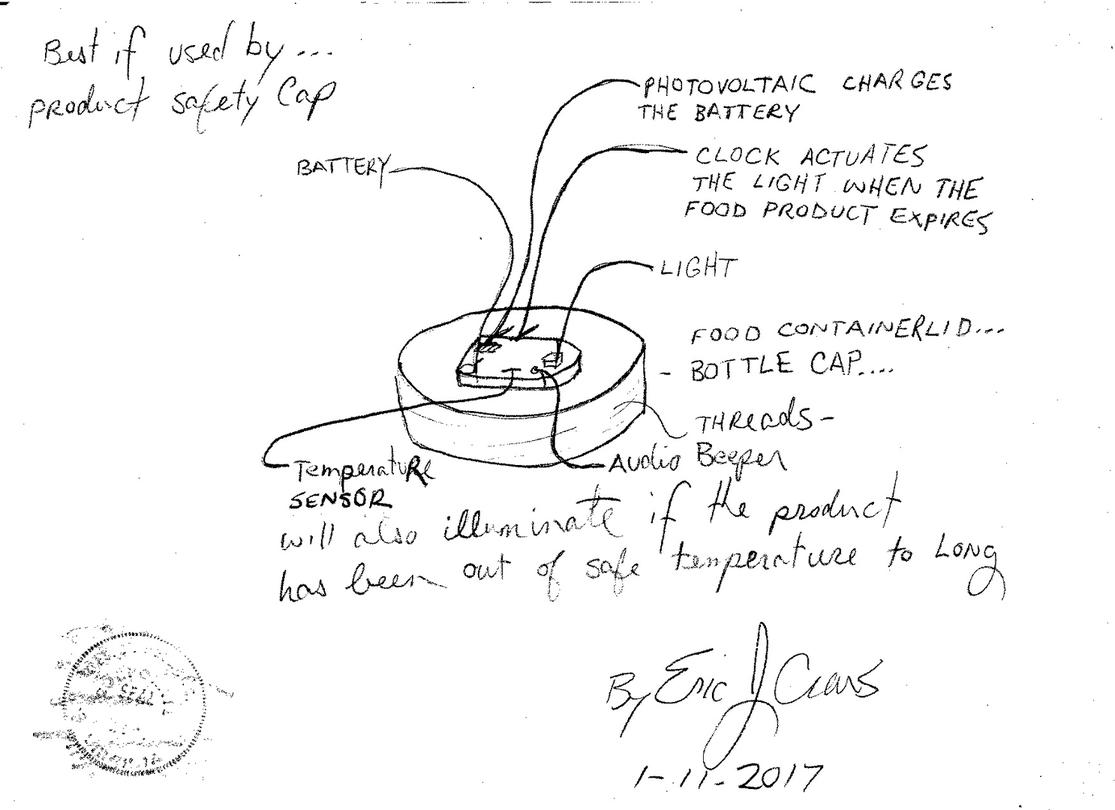 Best if used by...
product safety Cap
PHOTOVOLTAIC CHARGES
THE BATTERY
BATTERY
CLOCK ACTUATES
THE LIGHT WHEN THE
FOOD PRODUCT EXPIRES
LIGHT
FOOD CONTAINER LID...
- BOTTLE CAP....
THREADS -
Temperature
SENSOR
AUDIO Beeper
will also illuminate if the product
has been out of safe temperature to LONG
By Eric J
1-11-2017
SEAL